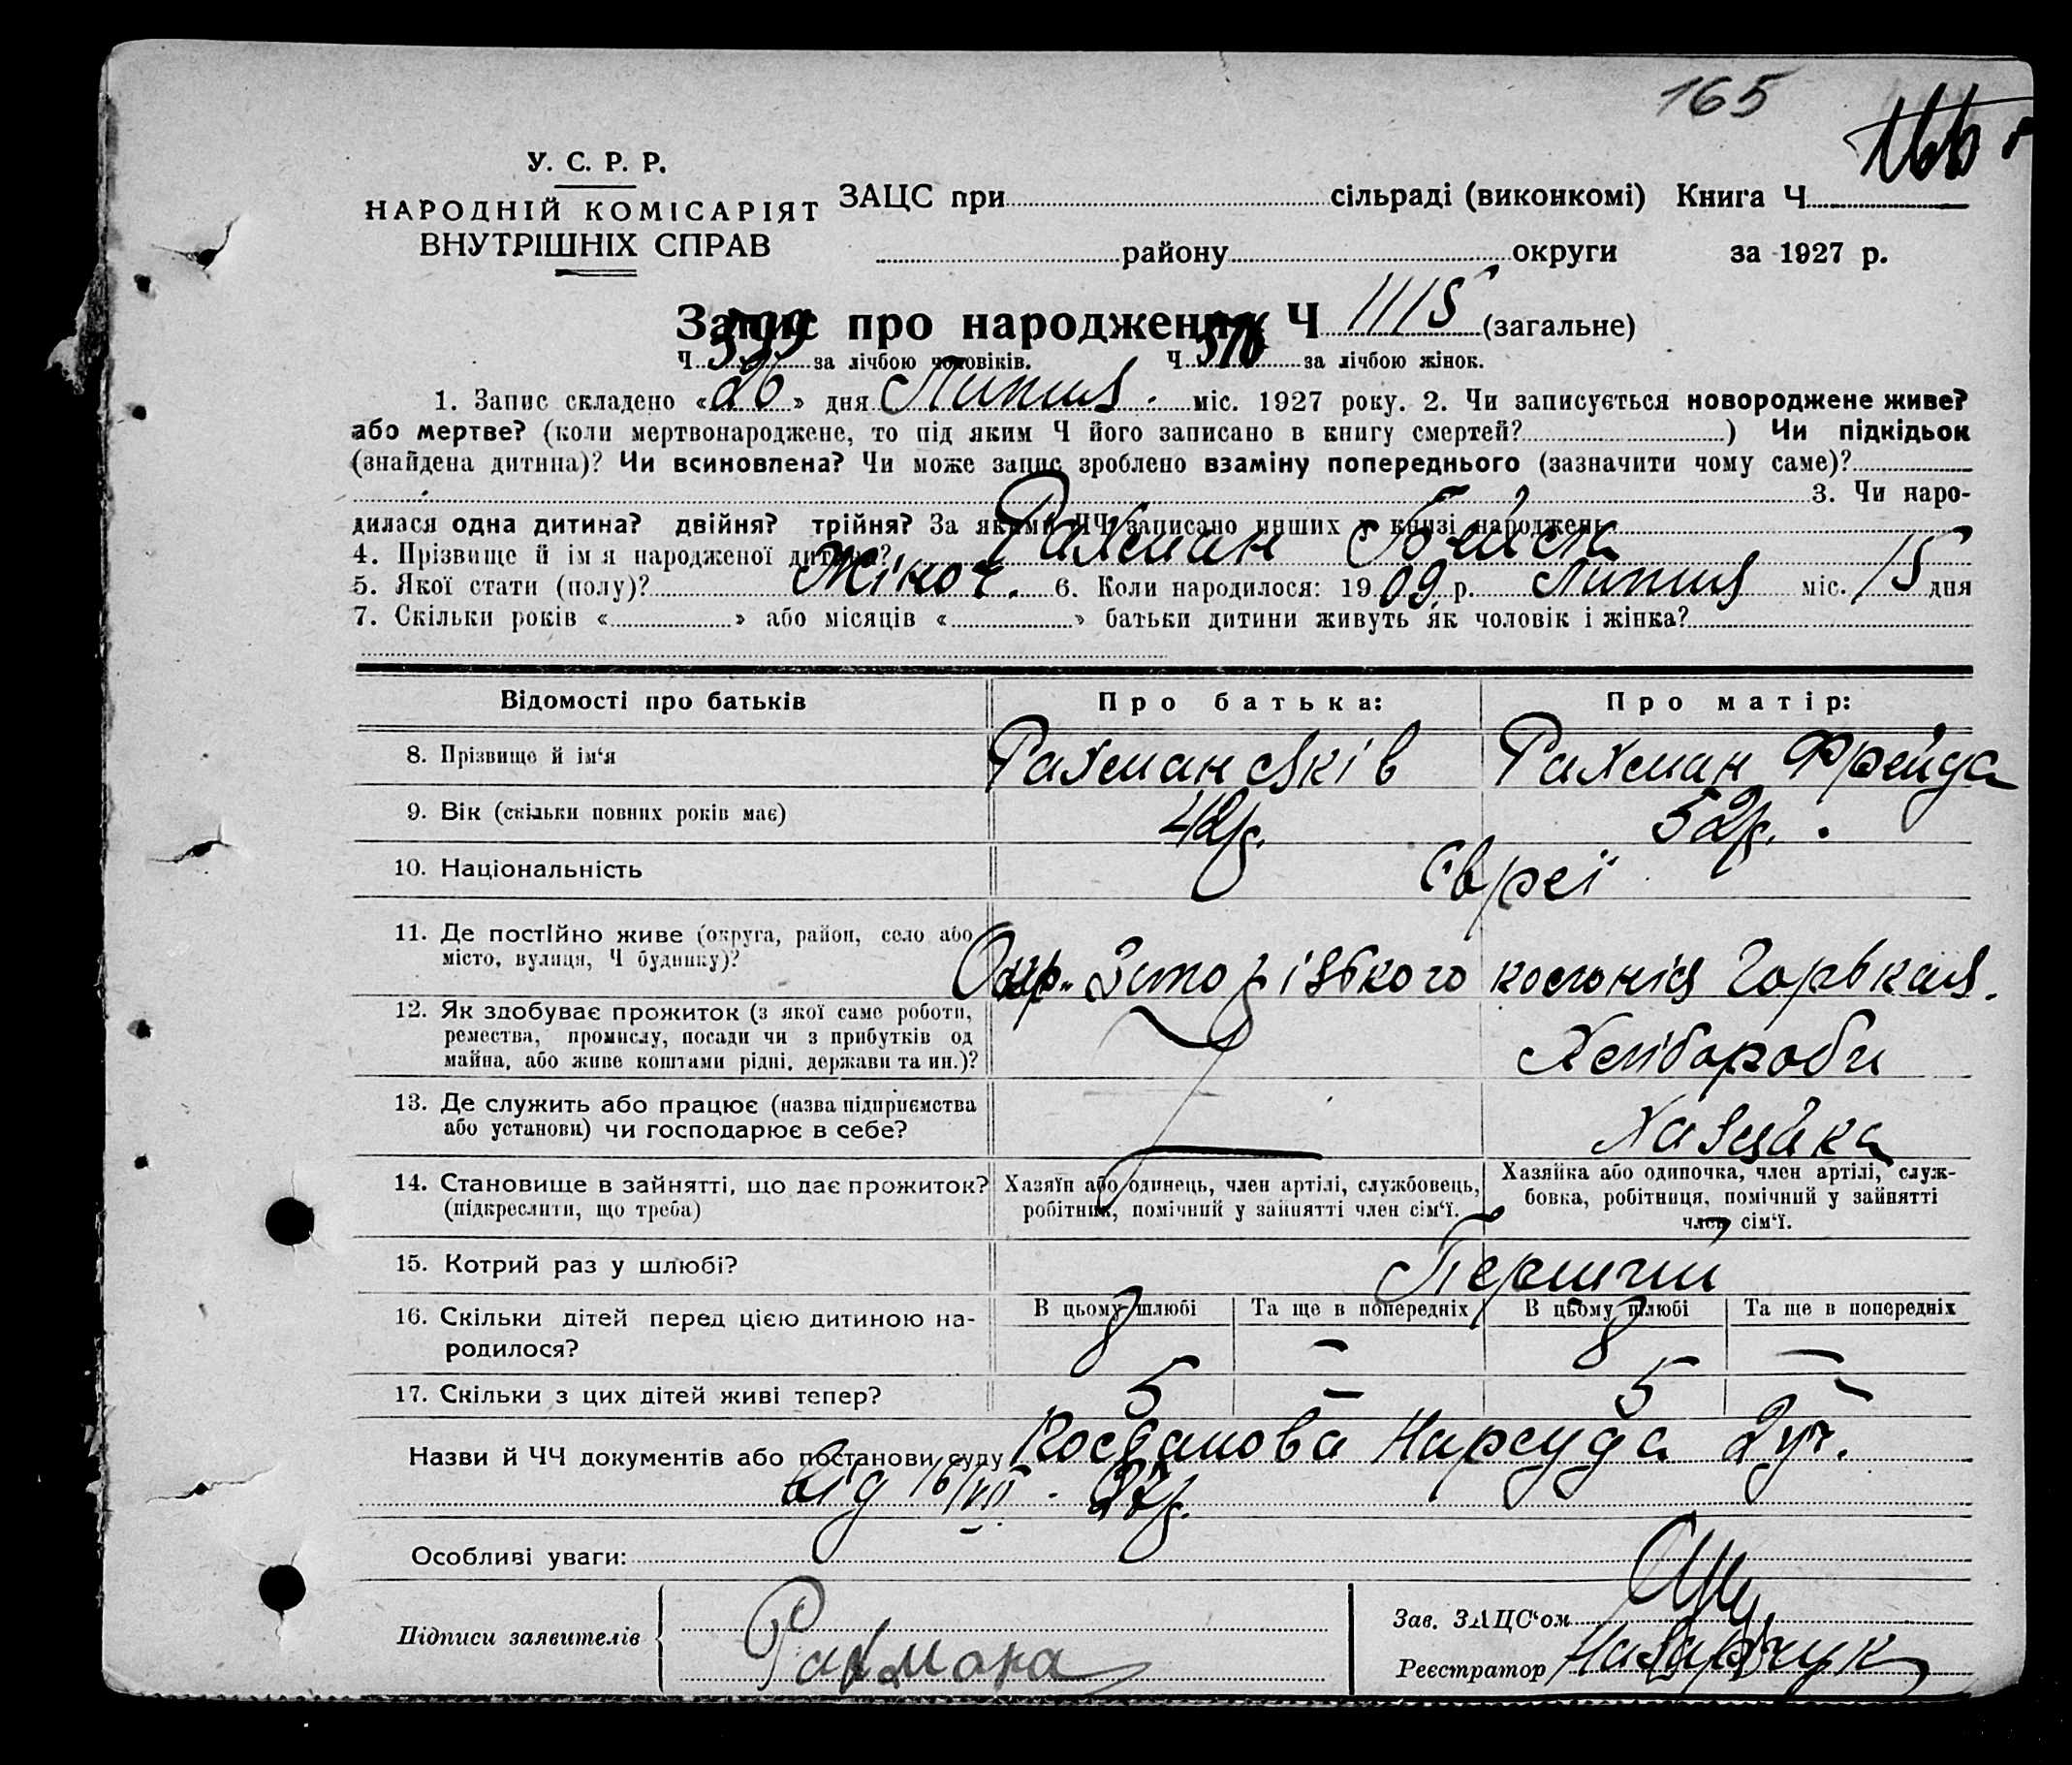 165
У. С. Р. Р.
НАРОДНІЙ КОМІСАРІЯТ
ВНУТРІШНІХ СПРАВ
ЗАЦС при сільраді (виконкомі) Книга Ч
району округи за 1927 р.
Запис про народження Ч 1115 (загальне)
Ч 599 за лічбою чоловіків. Ч 516 за лічбою жінок.
1. Запис складено «26» дня Липня міс. 1927 року. 2. Чи записується новороджене живе?
або мертве? (коли мертвонароджене, то під яким Ч його записано в книгу смертей? ) Чи підкідьок
(знайдена дитина)? Чи всиновлена? Чи може запис зроблено взаміну попереднього (зазначити чому саме)?
3. Чи наро-
дилася одна дитина? двійня? трійня? За якими ЧЧ записано инших у книзі народжень
4. Прізвище й ім'я народженої дитини? Рахман Бейла
5. Якої стати (полу)? Жіноч. 6. Коли народилося: 1909 р. Липня міс. 15 дня
7. Скільки років « » або місяців « » батьки дитини живуть як чоловік і жінка?
Відомості про батьків Про батька: Про матір:
8. Прізвище й ім'я Рахман Яків Рахман Фрейда
9. Вік (скільки повних років має) 42р. 52р.
10. Національність Євреї
11. Де постійно живе (округа, район, село або
місто, вулиця, Ч будинку)? колонія Горькая.
12. Як здобуває прожиток (з якої саме роботи,
ремества, промислу, посади чи з прибутків од
майна, або живе коштами рідні, держави та ин.)? Хліборобн
13. Де служить або працює (назва підприємства
або установи) чи господарює в себе? Хазяйка
14. Становище в зайнятті, що дає прожиток?
(підкреслити, що треба)
Хазяїн або одинець, член артілі, службовець,
робітник, помічний у зайнятті член сім'ї.
Хазяйка або одиночка, член артілі, служ-
бовка, робітниця, помічний у зайнятті
член сім'ї.
15. Котрий раз у шлюбі? Перший
16. Скільки дітей перед цією дитиною на-
родилося?
В цьому шлюбі Та ще в попередніх В цьому шлюбі Та ще в попередніх
8 — 8 —
17. Скільки з цих дітей живі тепер? 5 — 5 —
Назви й ЧЧ документів або постанови суду Постанова Нарсуда 2 уч.
від 16/VII - 27р.
Особливі уваги:
Підписи заявителів Рахмана
Зав. ЗАЦС'ом
Реєстратор Назарчук